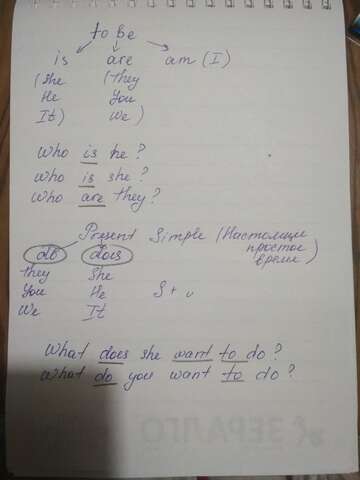 to be
is are am (I)
(She (they
He You
It) We)
Who is he?
Who is she?
Who are they?
Present Simple (Настояще
do does простое
время)
they She
You He S + v
We It
What does she want to do?
What do you want to do?
ЗЕРАЛГО